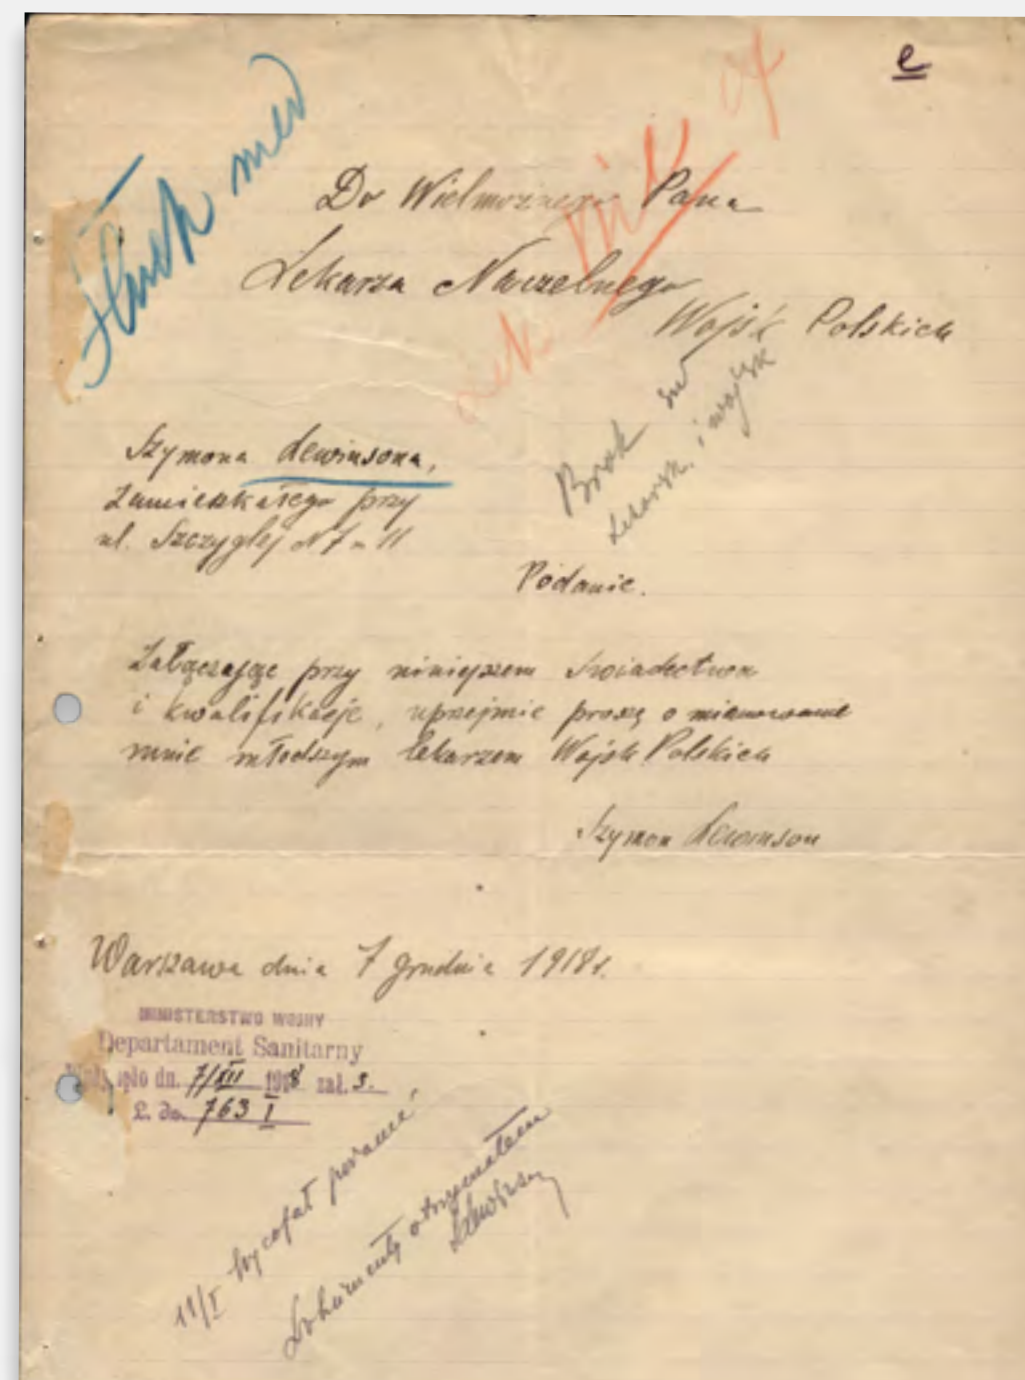 e
med
Do Wielmożnego Pana
Lekarza Naczelnego
Wojsk Polskich
Brak św
lekarsk. i wojsk
Szymona Lewinsona,
Zamieszkałego przy
ul. Szczyglej N 7 m 11
Podanie.
Załączając przy niniejszem świadectwa
i kwalifikacje, uprzejmie proszę o mianowanie
mnie młodszym lekarzem Wojsk Polskich
Szymon Lewinson
Warszawa dnia 7 grudnia 1918 r.
MINISTERSTWO WOJNY
Departament Sanitarny
dn. 7/XII 1918 zał. 3.
L. dz. 763 I
11/I wycofał podanie
Dokumenty otrzymałem